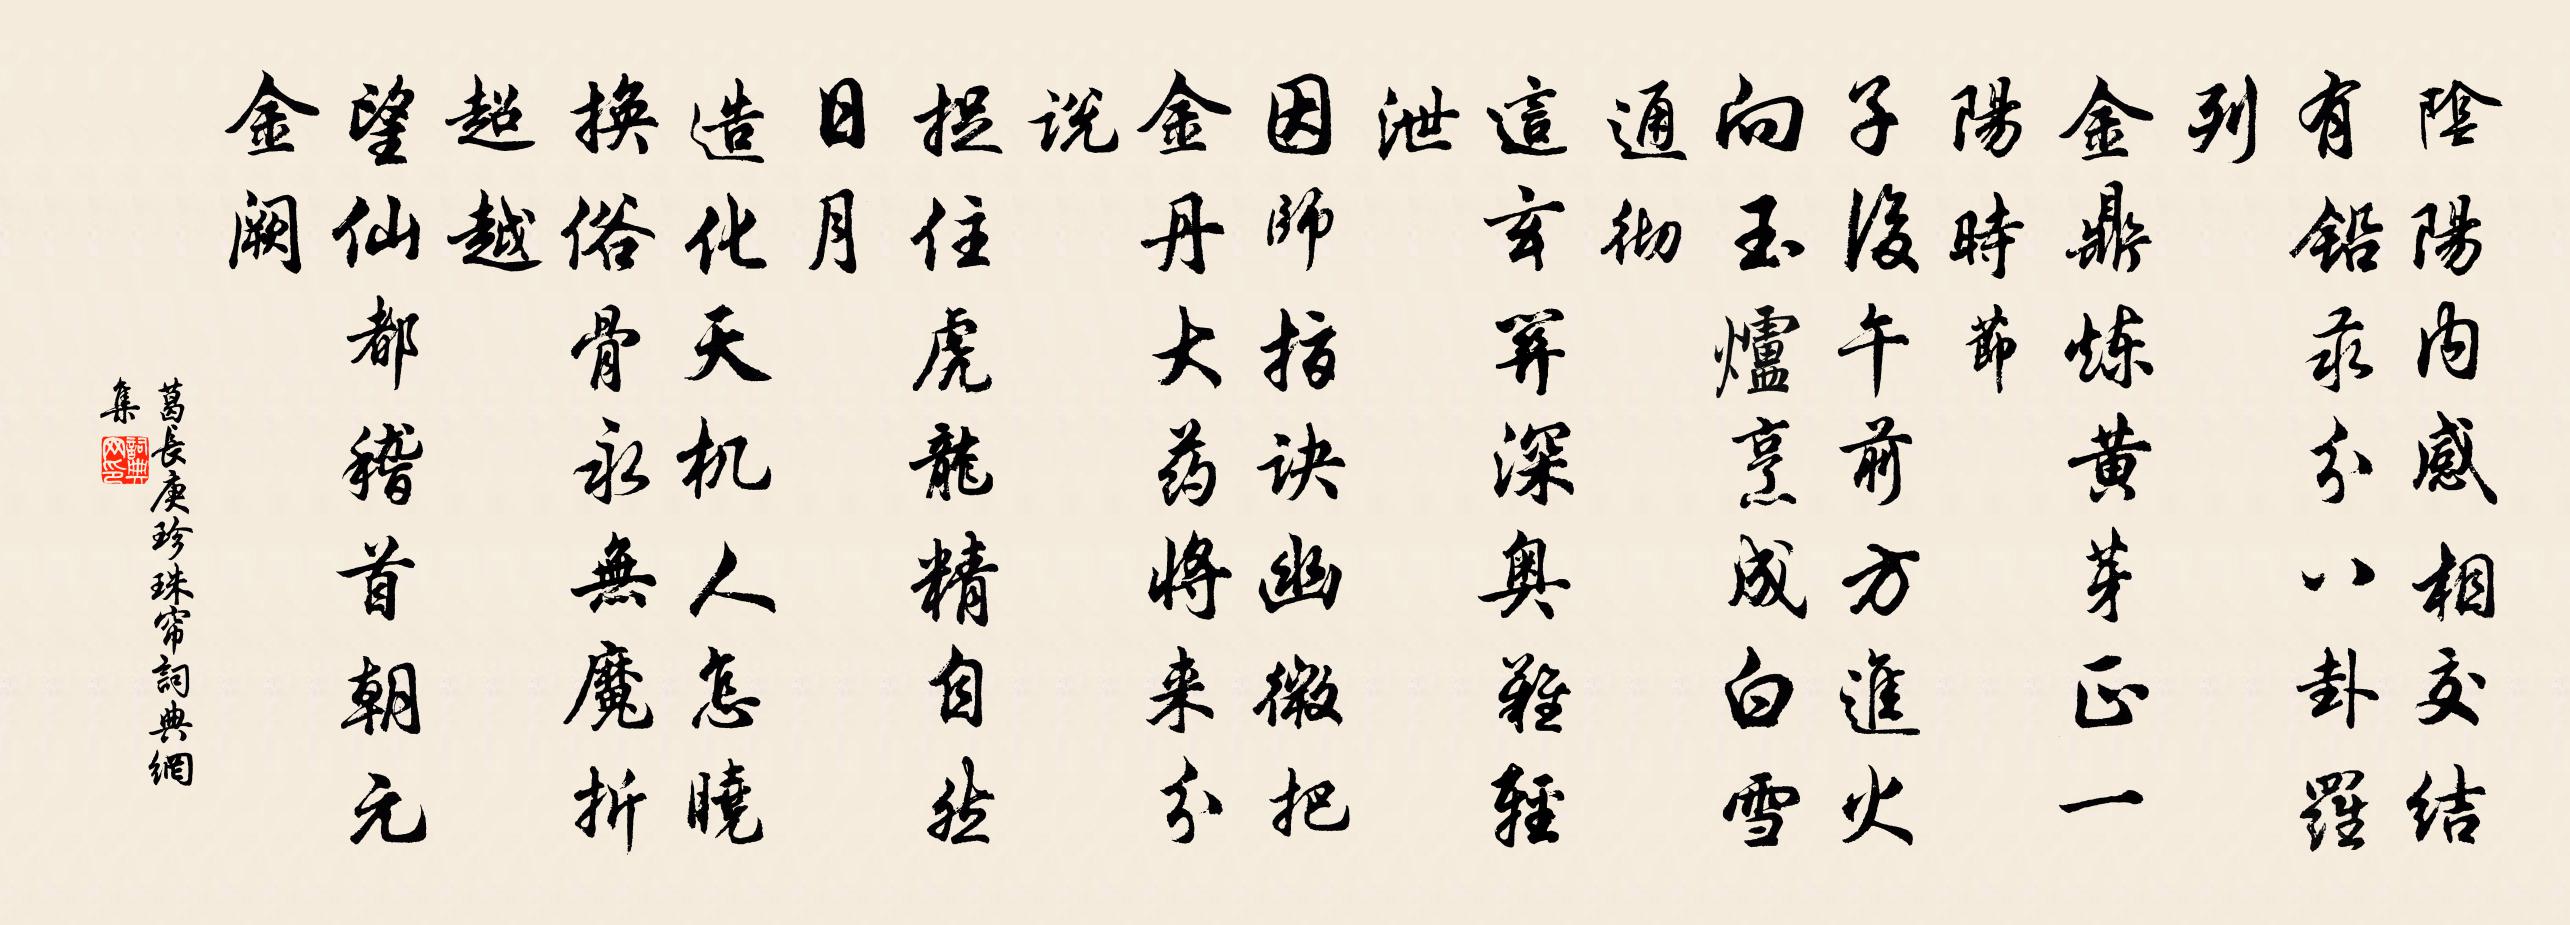 陰陽內感相交結
有鉛汞分八卦羅
列
金鼎炼黃芽正一
陽時節
子後午前方進火
向玉爐烹成白雪
通彻
這玄関深奧難輕
泄
因師指訣幽微把
金丹大药將来分
說
捉住虎龍精自然
日月
造化天机人怎曉
換俗骨永無魔折
超越
望仙都稽首朝元
金闕
葛長庚珍珠帘詞典網
集
詞典
网印